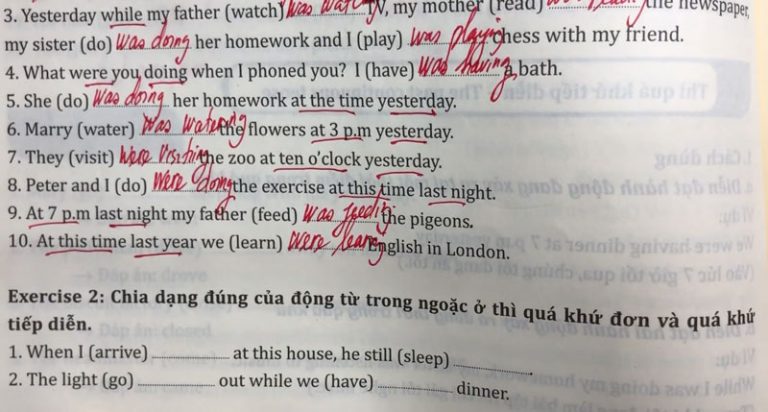 3. Yesterday while my father (watch) was watching TV, my mother (read) was reading the newspaper,
my sister (do) was doing her homework and I (play) was playing chess with my friend.
4. What were you doing when I phoned you? I (have) was having a bath.
5. She (do) was doing her homework at the time yesterday.
6. Marry (water) was watering the flowers at 3 p.m yesterday.
7. They (visit) were visiting the zoo at ten o'clock yesterday.
8. Peter and I (do) were doing the exercise at this time last night.
9. At 7 p.m last night my father (feed) was feeding the pigeons.
10. At this time last year we (learn) were learning English in London.
Exercise 2: Chia dạng đúng của động từ trong ngoặc ở thì quá khứ đơn và quá khứ
tiếp diễn.
1. When I (arrive) ............ at this house, he still (sleep) ............
2. The light (go) ............ out while we (have) ............ dinner.